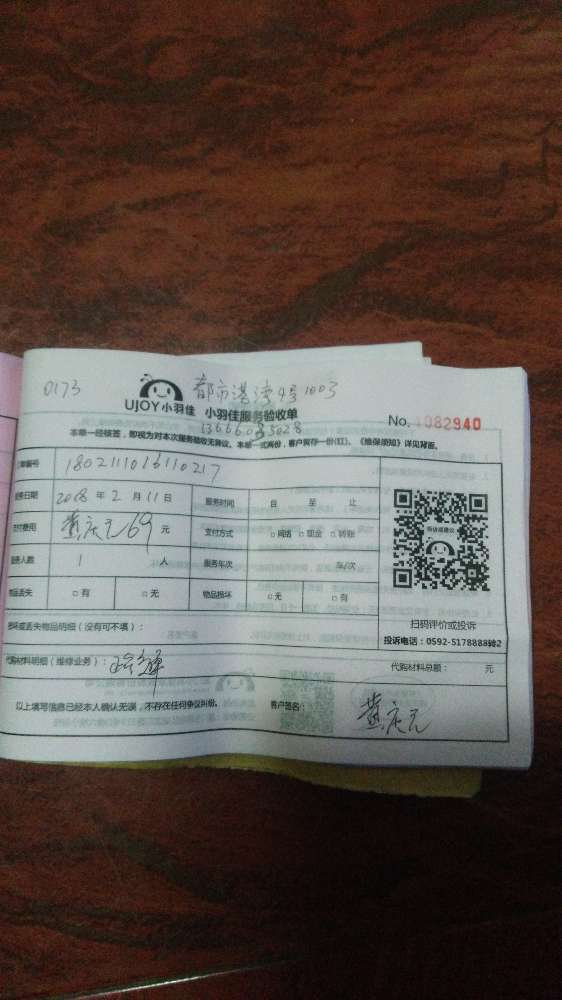 0173 都市港湾4号1003
UJOY小羽佳 小羽佳服务验收单
No. 1082940
13666035028
本单一经核签，即视为对本次服务验收无异议。本单一式两份，客户留存一份(红)。《维保须知》详见背面。
单编号 180211101611 0217
务日期 2018 年 2 月 11 日 服务时间 自 至 止
支付费用 黄庆元 69 元 支付方式 □网络 □现金 □转账
服务人数 1 人 服务年次 车/次
物品丢失 □有 □无 物品损坏 □无 □有
扫码评价或投诉
投诉电话：0592-5178888转2
损坏或丢失物品明细（没有可不填）：
代购材料明细（维修业务）： 代购材料总额： 元
以上填写信息已经本人确认无误，不存在任何争议纠纷。 客户签名： 黄庆元